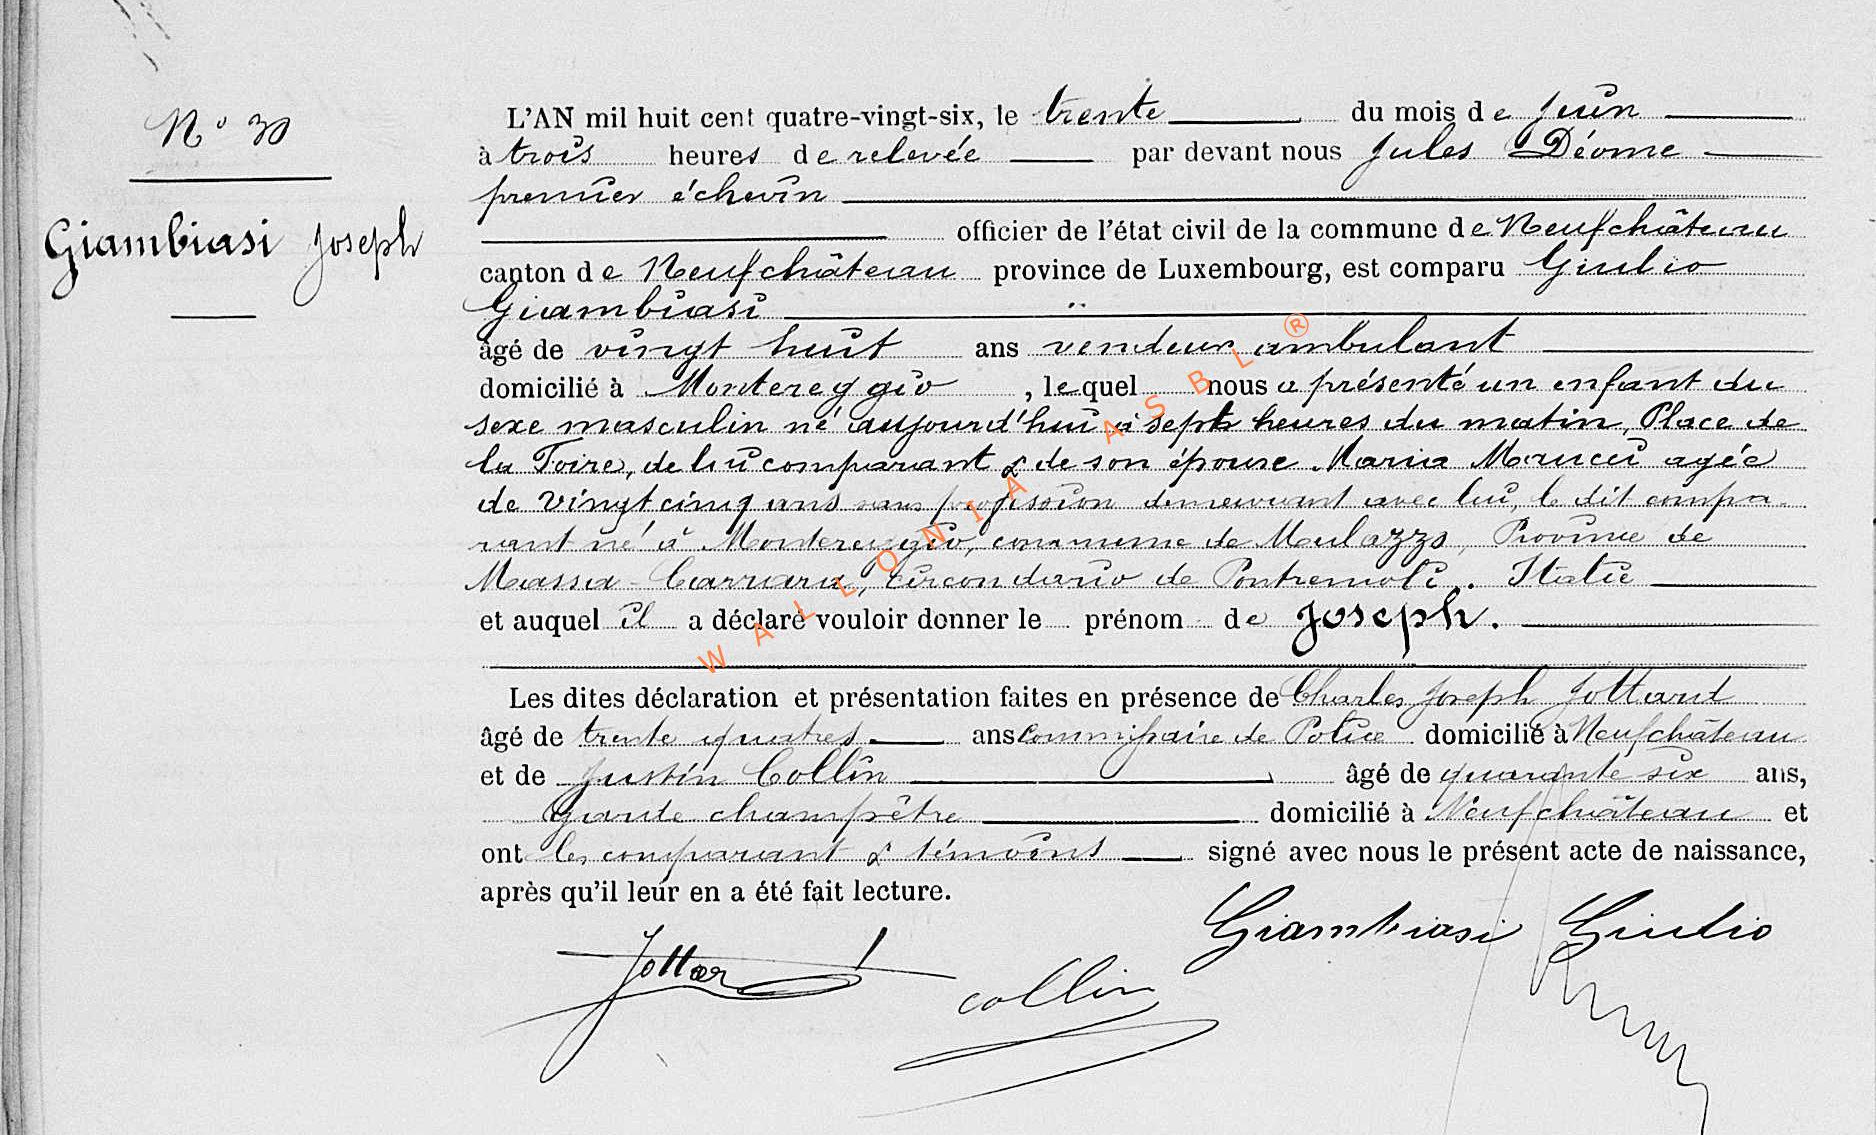 N° 30
Giambiasi Joseph
L'AN mil huit cent quatre-vingt-six, le trente du mois de juin
à trois heures de relevée par devant nous Jules Déome
premier échevin
officier de l'état civil de la commune de Neufchâteau
canton de Neufchâteau province de Luxembourg, est comparu Giulio
Giambiasi
âgé de vingt huit ans vendeur ambulant
domicilié à Montereggio, lequel nous a présenté un enfant du
sexe masculin né aujourd'hui à sept heures du matin, Place de
la Foire, de lui comparant & de son épouse Maria Maucci agée
de vingt cinq ans sans profession demeurant avec lui, le dit compa-
rant né à Montereggio, commune de Mulazzo, Province de
Massa-Carrara, circondario de Pontremoli. Italie
et auquel il a déclaré vouloir donner le prénom de Joseph.
Les dites déclaration et présentation faites en présence de Charles Joseph Jottard
âgé de trente quatres ans commissaire de Police domicilié à Neufchâteau
et de Justin Collin âgé de quarante six ans,
garde champêtre domicilié à Neufchâteau et
ont les comparant & témoins signé avec nous le présent acte de naissance,
après qu'il leur en a été fait lecture.
Giambiasi Giulio
Jottard
Collin
WALLONIA ASBL ®